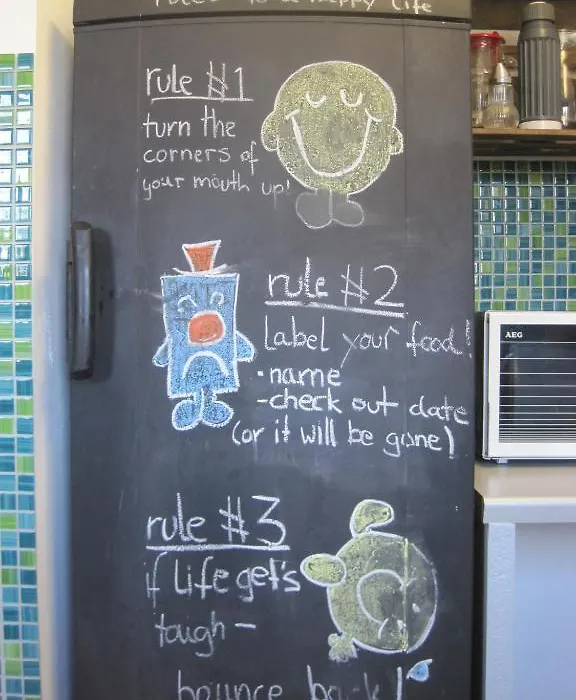 rules to a happy life
rule #1
turn the
corners of
your mouth up!
rule #2
Label your food!
• name
- check out date
(or it will be gone)
AEG
rule #3
if Life get's
tough -
bounce back!